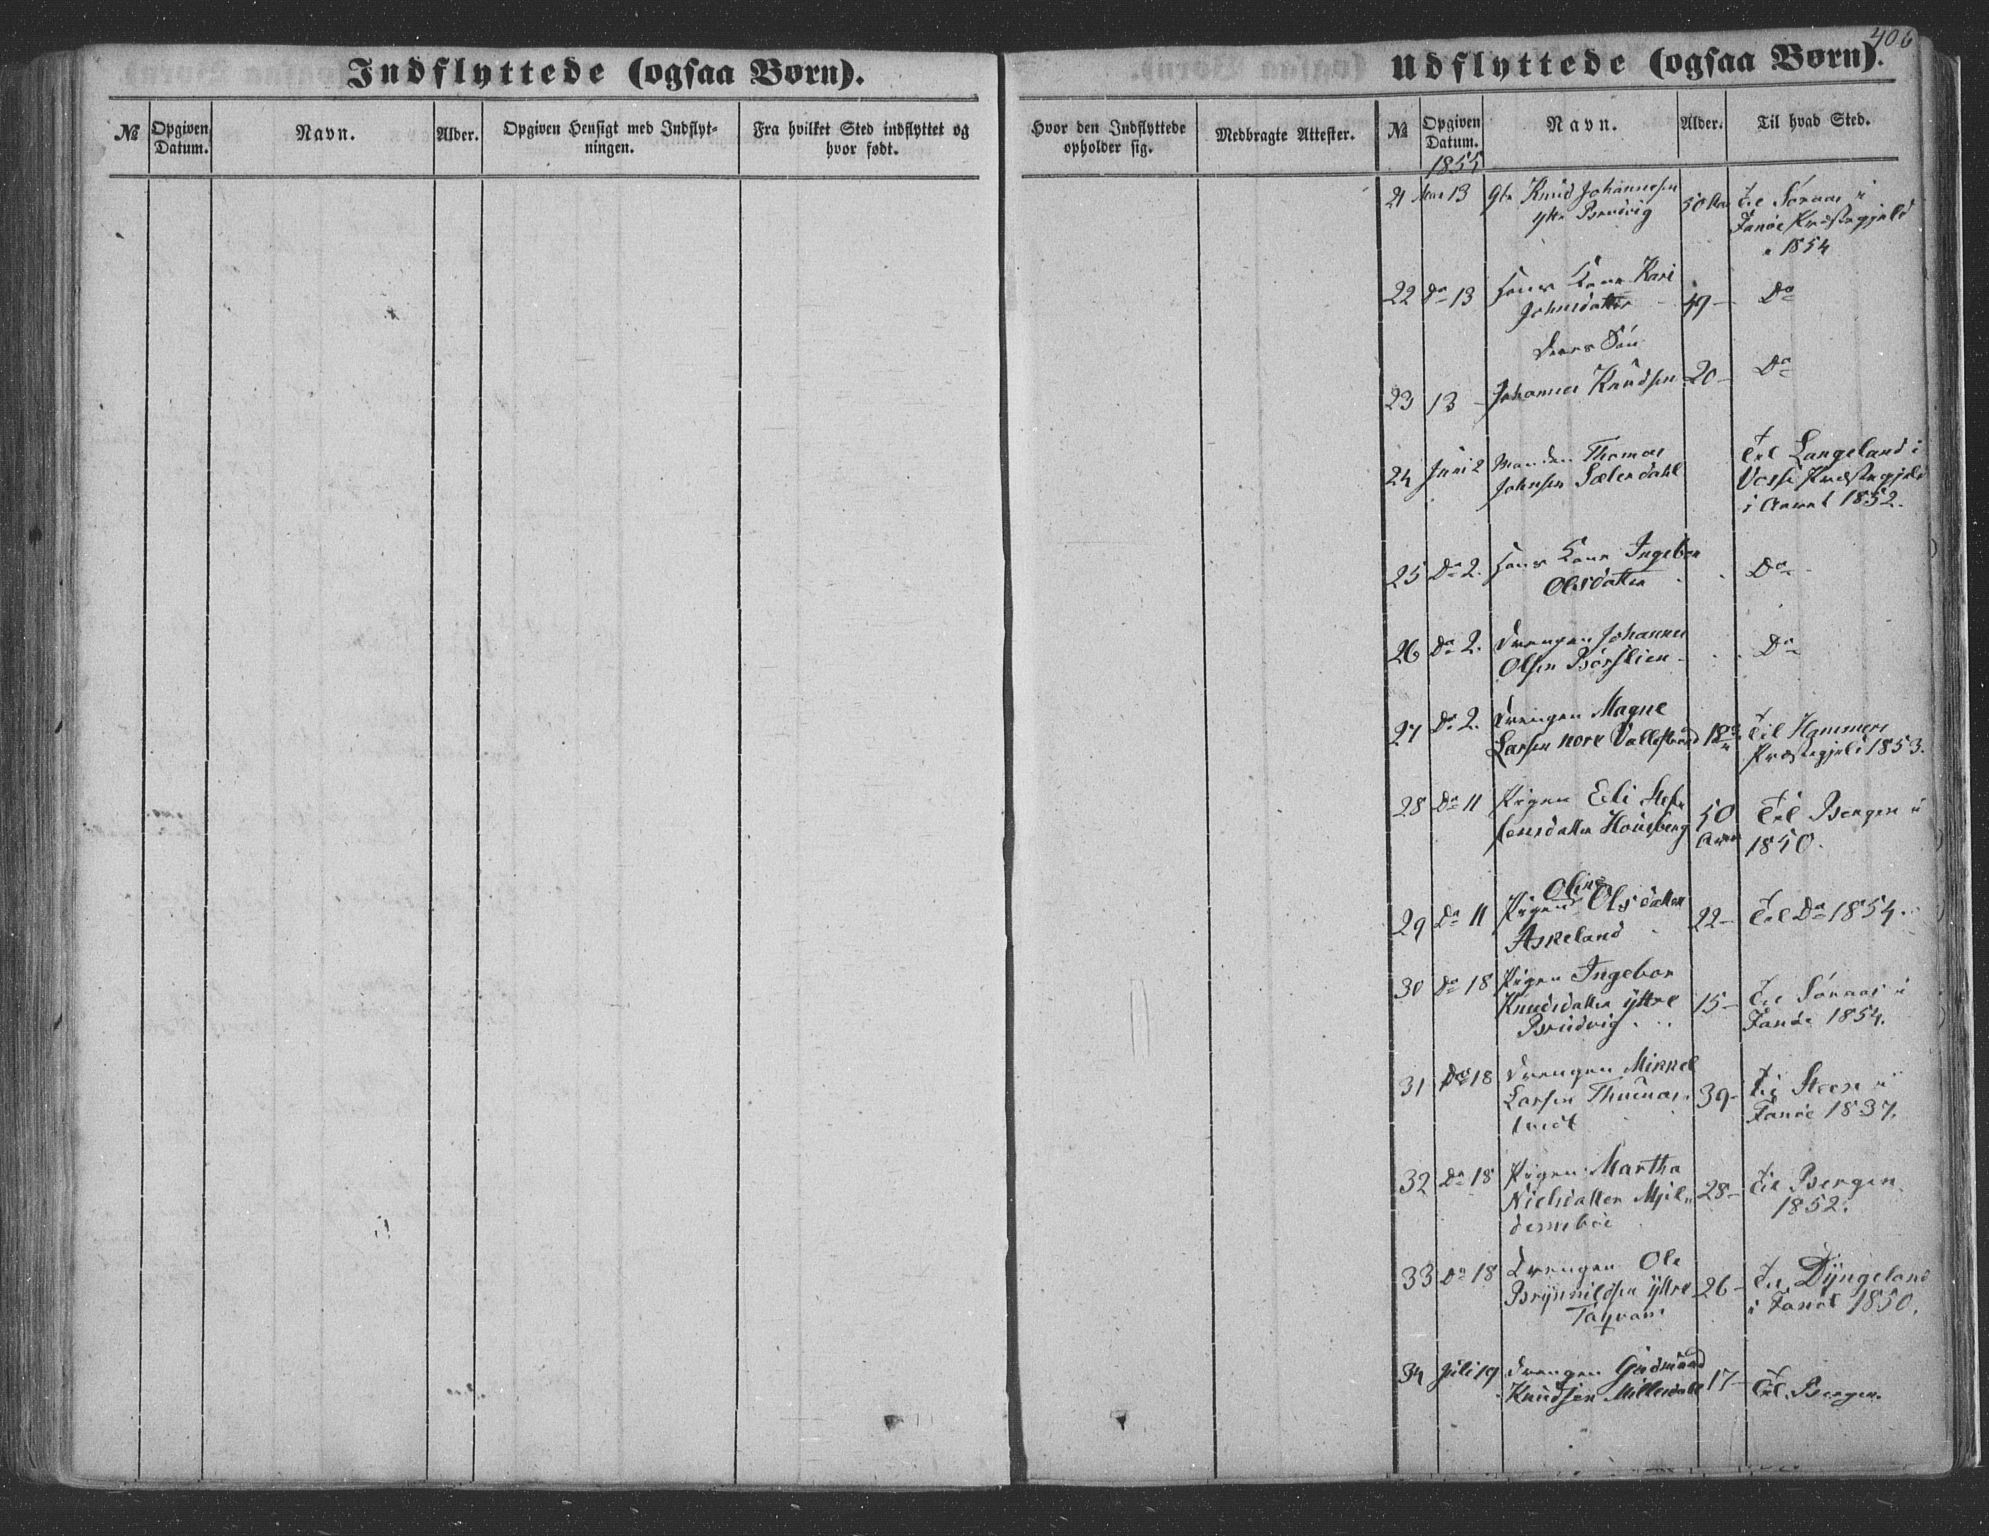 406
Indflyttede (ogsaa Børn).
Udflyttede (ogsaa Børn).
№
Opgiven Datum.
Navn.
Alder.
Opgiven Hensigt med Indflyt-
ningen.
Fra hvilket Sted indflyttet og
hvor født.
Hvor den Indflyttede
opholder sig.
Medbragte Attester.
№
Opgiven Datum.
Navn.
Alder.
Til hvad Sted.
1855
21 13 Knud Johannesen
Brudvig 50 Til Søraas i
Fanøe Præstegjeld
1854
22 Do 13 Hans Kone Kari
Johnsdatter 49 Do
Deres Søn
23 13 Johannes Knudsen 20 Do
24 Juni 2 Manden Thomas
Johnsen Sælendahl
Til Langeland i
Vosse Præstegjeld
i Aaret 1852.
25 Do 2. Hans Kone Ingebor
Olsdatter Do
26 Do 2. Drengen Johannes
Olsen Børslien Do
27 Do 2. Drengen Magne
Larsen nore Vallestrand 18 Til Hammers
Præstegjeld 1853.
28 Do 11 Pigen Eli Stef
fensdatter Housberg 50
Aar
Til Bergen i
1850.
29 Do 11 Pigen Oline Olsdatter
Askeland 22 Til Do 1854.
30 Do 18 Pigen Ingebor
Knudsdatter yttre
Brudvig 15 Til Søraas i
Fanøe 1854.
31 Do 18 Drengen Mikkel
Larsen Thunæs
tvedt 39 Til i
Fanøe 1837.
32 Do 18 Pigen Martha
Nielsdatter Mjel
demsbøe 28 Til Bergen
1852.
33 Do 18 Drengen Ole
Brynnildsen yttre
26 Til Dyngeland
i Fanøe 1850.
34 Juli 19 Drengen Gudmund
Knudsen 17 Til Bergen.